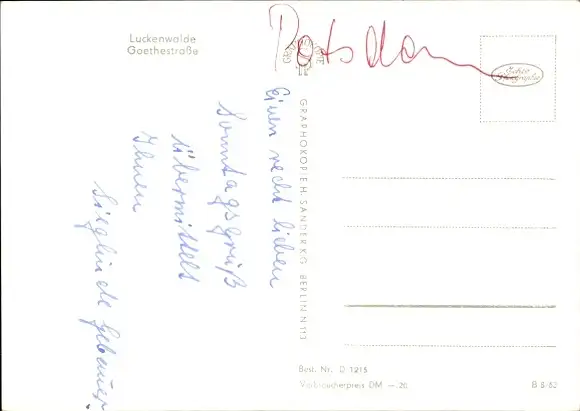 Luckenwalde
Goethestraße
Potsdam
Echte Photographie
Einen recht lieben
Sonntagsgruß
übermittelt
Ihnen
Sieglinde Gebauer.
GRAPHOKOPIE H. SANDER KG. BERLIN N 113
Best. Nr. D 1215
Verbraucherpreis DM —.20
B 8/62